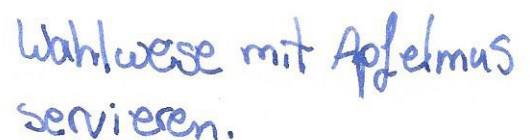 Wahlwese mit Apfelmus
servieren.